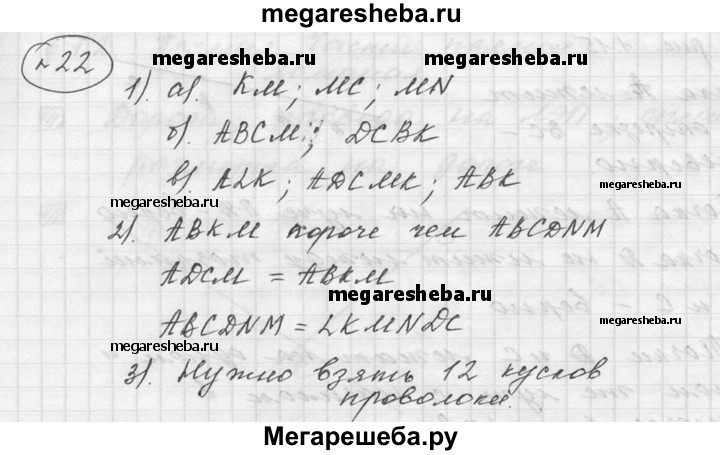 megaresheba.ru
№22
megaresheba.ru megaresheba.ru
1). а). КМ; МС; MN
б). АВСМ; DCBK
в). ALK; ADCMK; ABK
megaresheba.ru megaresheba.ru
2). АВКМ короче чем ABCDNM
ADCM = ABKM
megaresheba.ru
ABCDNM = LKMNDC
megaresheba.ru megaresheba.ru
3). Нужно взять 12 кусков
проволоки.
Мегарешеба.ру